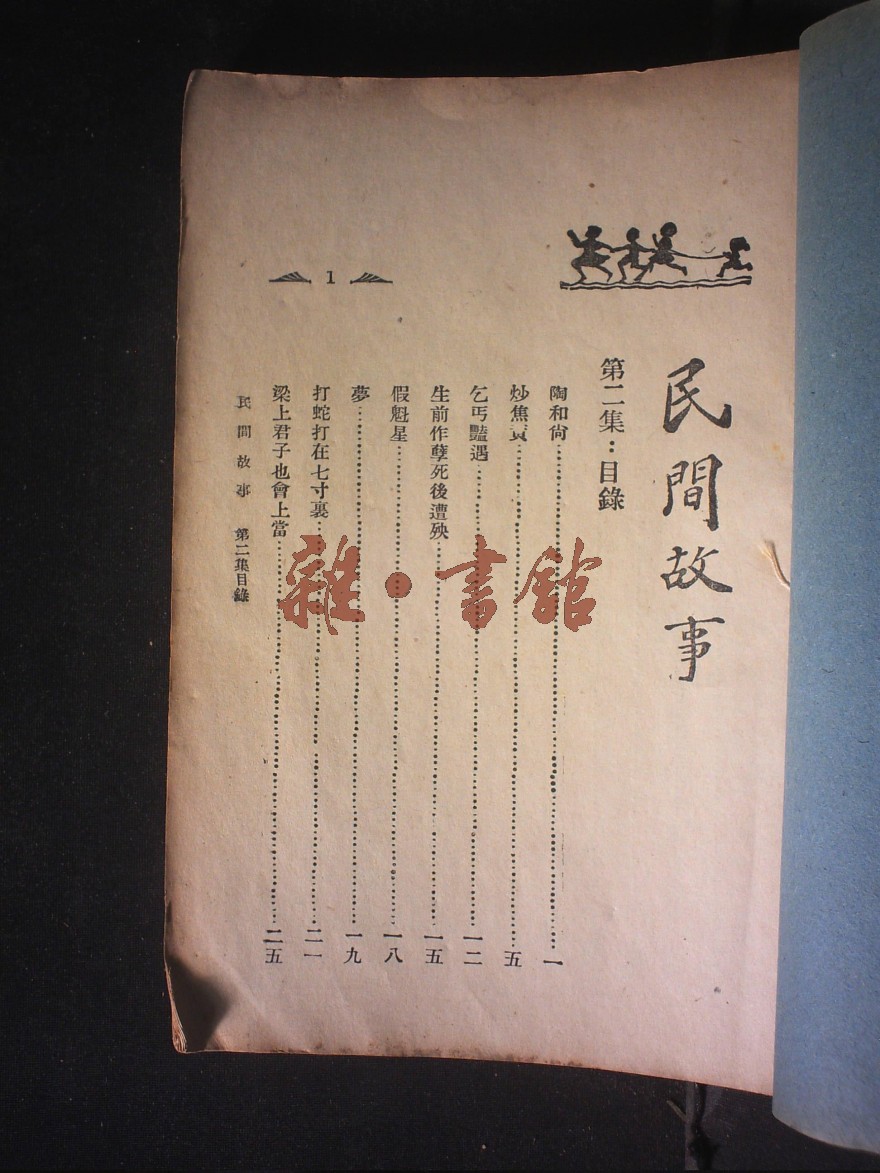 民間故事
第二集：目錄
陶和尙……一
炒焦蒉……五
乞丐豔遇……一二
生前作孽死後遭殃……一五
假魁星……一八
夢……一九
打蛇打在七寸裏……二一
梁上君子也會上當……二五
民間故事 第二集目錄
1
雜·書館